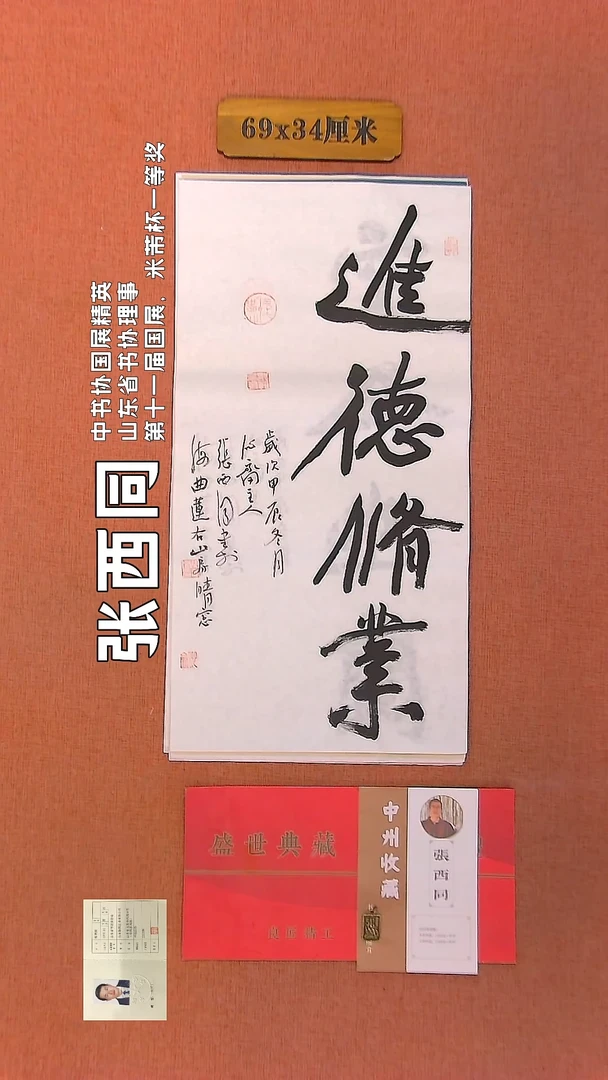 69x34厘米
進德修業
歲次甲辰冬月
沁齋主人
張西同書於
海曲蓮石山房晴窓
张西同
中书协国展精英
山东省书协理事
第十一届国展、米芾杯一等奖
盛世典藏
中州收藏
張西同